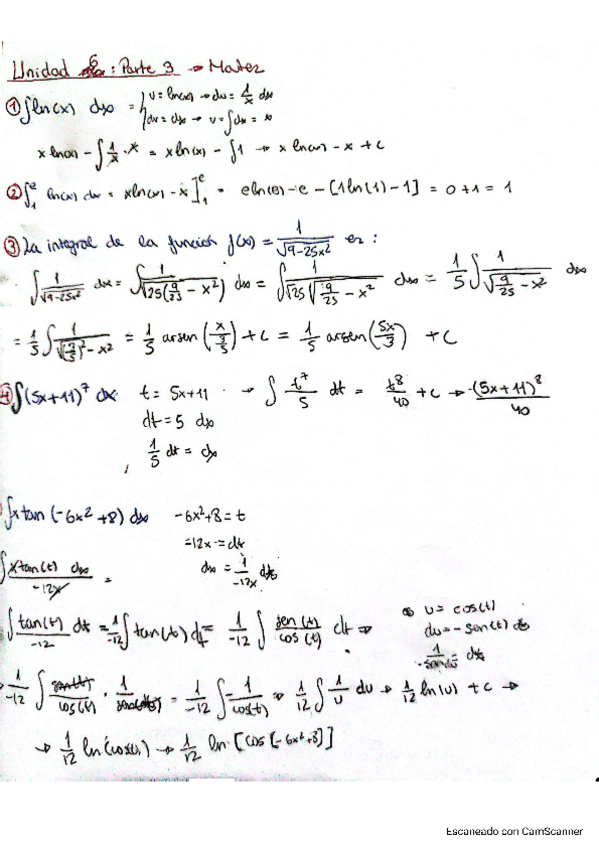 Unidad 6: Parte 3 → Matez
① ∫ln(x) dx = { u = ln(x) → du = 1/x dx
dv = dx → v = ∫dx = x
x ln(x) - ∫ 1/x · x = x ln(x) - ∫1 → x ln(x) - x + C
② ∫₁ᵉ ln(x) dx = x ln(x) - x ]₁ᵉ = e ln(e) - e - [1 ln(1) - 1] = 0 + 1 = 1
③ La integral de la función f(x) = 1/√(9-25x²) es :
∫ 1/√(9-25x²) dx = ∫ 1/√(25(9/25 - x²)) dx = ∫ 1/(√25 √(9/25 - x²)) dx = 1/5 ∫ 1/√(9/25 - x²) dx
= 1/5 ∫ 1/√((3/5)² - x²) = 1/5 arsen (x/(3/5)) + C = 1/5 arsen (5x/3) + C
④ ∫(5x+11)⁷ dx t = 5x+11 → ∫ t⁷/5 dt = t⁸/40 + C → (5x+11)⁸/40
dt = 5 dx
1/5 dt = dx
∫x tan (-6x² +8) dx -6x²+8 = t
=12x = dt
∫ x tan(t) dx/-12x = dx = 1/-12x dt
∫ tan(t)/-12 dt = 1/-12 ∫ tan(t) dt = 1/-12 ∫ sen(t)/cos(t) dt ⇒ u = cos(t)
du = -sen(t) dt
1/-sen(t) = dt
1/-12 ∫ sen(t)/cos(t) · 1/-sen(t) = 1/-12 ∫ -1/cos(t) → 1/12 ∫ 1/u du → 1/12 ln(u) + C →
→ 1/12 ln(cos(t)) → 1/12 ln [cos[-6x²+8)]
Escaneado con CamScanner